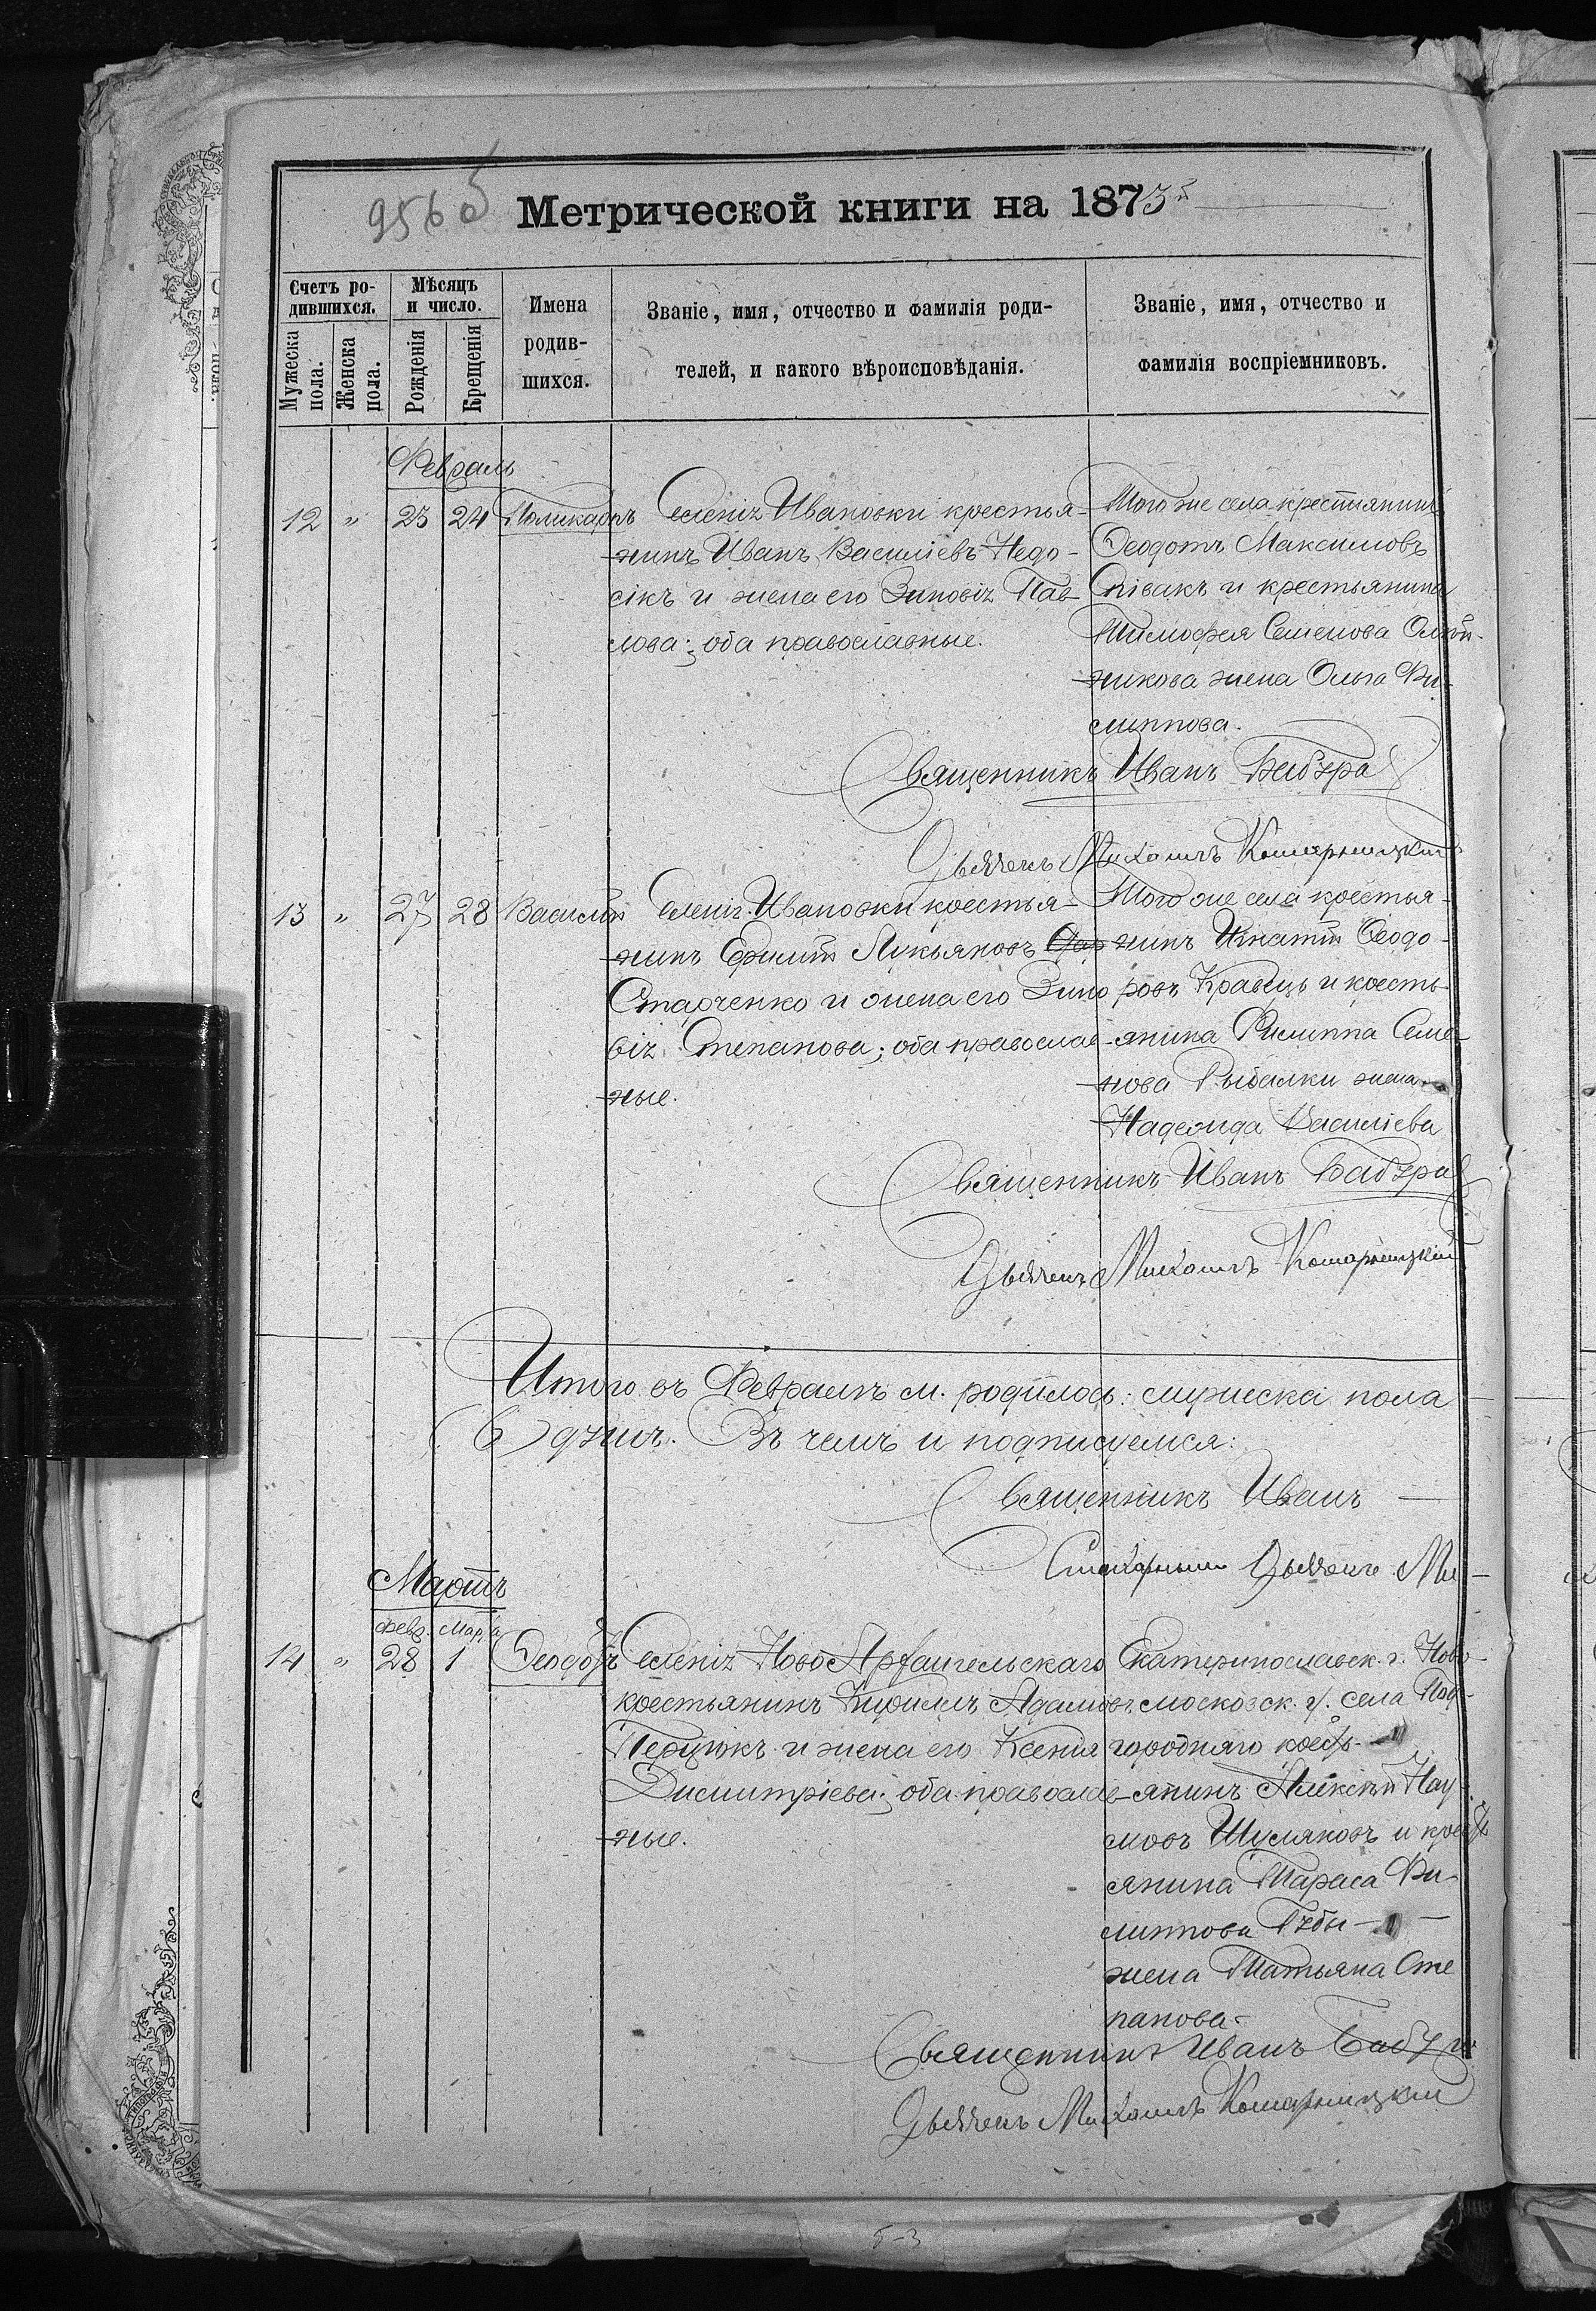 956 б Метрической книги на 1873й
Счетъ ро-
дившихся.
Мѣсяцъ
и число.
Имена
родив-
шихся.
Званіе, имя, отчество и фамилія роди-
телей, и какого вѣроисповѣданія.
Званіе, имя, отчество и
фамилія воспріемниковъ.
Мужеска
пола.
Женска
пола.
Рожденія
Крещенія
Февраль
12 " 23 24 Поликарпъ
Селенія Ивановки крестья-
нинъ Иванъ Василіевъ Недо-
сікъ и жена его Зиновія Пав-
лова; оба православные.
Того же села крестьянинъ
Ѳеодотъ Максимовъ
Співакъ и крестьянина
Тимофея Семенова Олѣй-
никова жена Ольга Фи-
липпова.
Священникъ Иванъ Бабура
Дьячекъ Михаилъ
13 " 27 28 Василій
Селенія Ивановки крестья-
нинъ Ефимій Лукьяновъ
Старченко и жена его Зино
вія Степанова; оба православ-
ные.
Того же села крестья-
нинъ Игнатій Ѳеодо-
ровъ Кравецъ и кресть-
янина Филиппа Семе-
нова Рыбалки жена
Надежда Василіева
Священникъ Иванъ Бабура
Дьячекъ Михаилъ
Итого въ Февралѣ м. родилось: мужеска пола
6 душъ. Въ чемъ и подписуемся:
Священникъ Иванъ —
Дьячекъ Ми-
Мартъ
Февр. Марта
14 " 28 1 Ѳеодоръ
Селенія Ново Архангельскаго
крестьянинъ Кириллъ Адамовъ
Перцюкъ и жена его Ксенія
Димитріева; оба православ-
ные.
Екатеринославск. г. Ново-
московск. у. села Под-
городняго крест-
янинъ Алексѣй Нау-
мовъ Шуляковъ и крест
янина Тараса Фи-
липпова Губы —
жена Татьяна Сте
панова-
Священникъ Иванъ Бабура
Дьячекъ Михаилъ
5-3